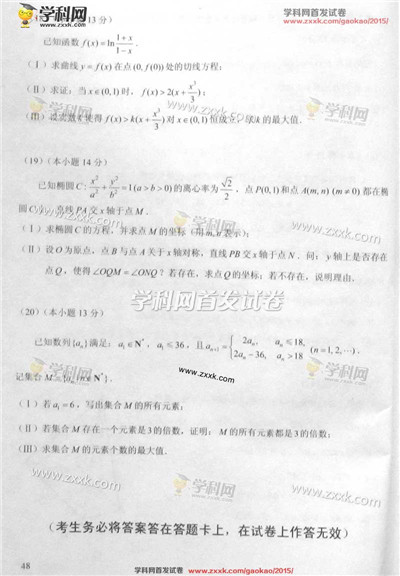 学科网 学科网首发试卷
www.zxxk.com/gaokao/2015/
13 分）
已知函数 f(x)=ln (1+x)/(1−x) .
（Ⅰ）求曲线 y=f(x) 在点(0, f(0)) 处的切线方程；
（Ⅱ）求证：当 x∈(0,1) 时，f(x)>2(x+x³/3)；
（Ⅲ）设实数 k 使得 f(x)>k(x+x³/3) 对 x∈(0,1) 恒成立，求 k 的最大值.
www.zxxk.com
学科网
（19）（本小题 14 分）
已知椭圆 C: x²/a²+y²/b²=1(a>b>0) 的离心率为 √2/2，点 P(0,1) 和点 A(m,n) (m≠0) 都在椭
圆 C 上，直线 PA 交 x 轴于点 M .
（Ⅰ）求椭圆 C 的方程，并求点 M 的坐标（用 m, n 表示）；
（Ⅱ）设 O 为原点，点 B 与点 A 关于 x 轴对称，直线 PB 交 x 轴于点 N . 问：y 轴上是否存在
点 Q，使得 ∠OQM=∠ONQ？若存在，求点 Q 的坐标；若不存在，说明理由.
学科网首发试卷
（20）（本小题 13 分）
已知数列{aₙ}满足：a₁∈N*，a₁≤36，且 aₙ₊₁={2aₙ, aₙ≤18, 2aₙ−36, aₙ>18 (n=1,2,⋯).
记集合 M={aₙ|n∈N*}.
www.zxxk.com
（Ⅰ）若 a₁=6，写出集合 M 的所有元素；
（Ⅱ）若集合 M 存在一个元素是 3 的倍数，证明：M 的所有元素都是 3 的倍数；
（Ⅲ）求集合 M 的元素个数的最大值.
www.zxxk.com
学科网
（考生务必将答案答在答题卡上，在试卷上作答无效）
48
学科网首发试卷 www.zxxk.com/gaokao/2015/